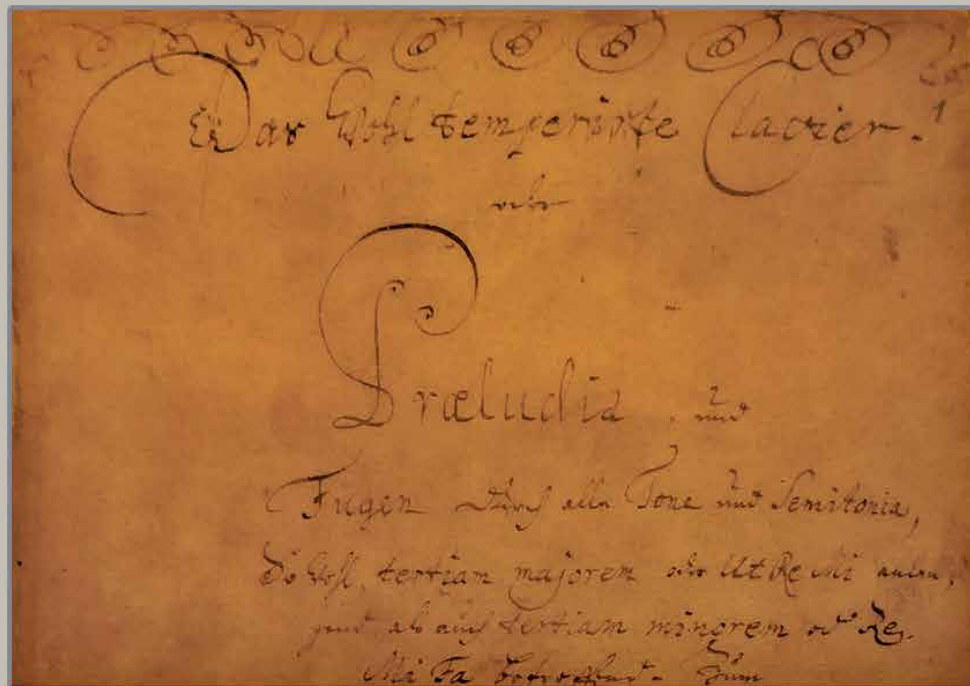 Das Wohltemperirte Clavier.
oder
Præludia, und
Fugen durch alle Tone und Semitonia,
So wohl tertiam majorem oder Ut Re Mi anlan,
gend, als auch tertiam minorem oder Re
Mi Fa betreffend. Zum